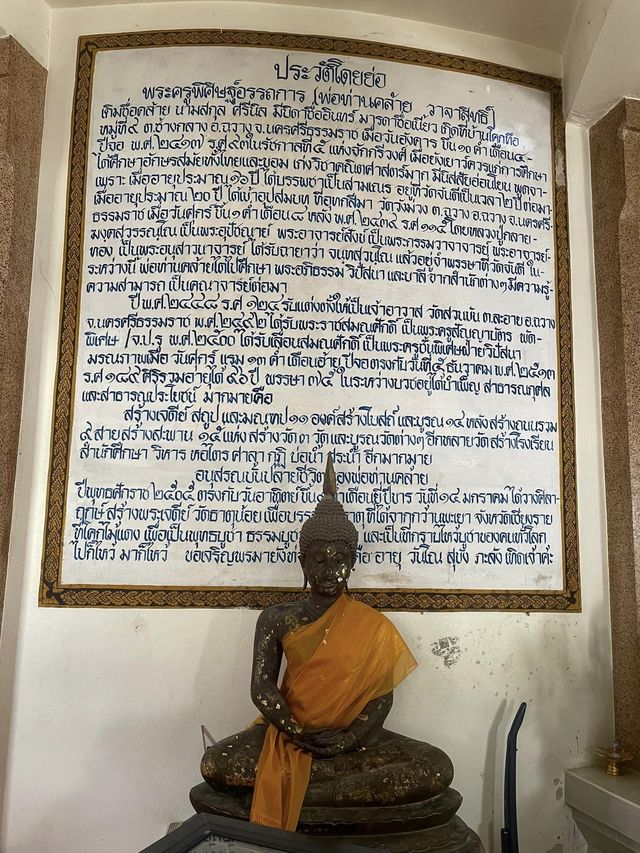 ประวัติโดยย่อ
พระครูพิศิษฐ์อรรถการ (พ่อท่านคล้าย วาจาสิทธิ์)
เดิมชื่อคล้าย นามสกุล ศรีนิล มีบิดาชื่ออินทร์ มารดาชื่อเนี่ยว เกิดที่บ้านโคกทือ
หมู่ที่ ๙ ต.ช้างกลาง อ.ฉวาง จ.นครศรีธรรมราช เมื่อวันอังคาร ขึ้น ๑๐ ค่ำ เดือน ๔-
ปีจอ พ.ศ. ๒๔๑๗ ร.ศ ๙๓ ในรัชกาลที่ ๕ แห่งจักกรีวงศ์ เมื่อยังเยาว์ควรแก่การศึกษา
ได้ศึกษาอักษรสมัยทั้งไทยและขอม เก่งวิชาคณิตศาสตร์มาก มีนิสสัยอ่อนโยน พูดจา-
เพราะ เมื่ออายุประมาณ ๑๖ ปี ได้บรรพชาเป็นสามเณร อยู่ที่วัดจันดีเป็นเวลา ๒ ปี ต่อมา
เมื่ออายุประมาณ ๒๐ ปี ได้เข้าอุปสมบท ที่อุทกสีมา วัดวังม่วง ต.ฉวาง อ.ฉวาง จ.นครศรี-
ธรรมราช เมื่อวันศุกร์ ขึ้น ๑ ค่ำ เดือน ๘ หลัง พ.ศ. ๒๔๓๙ ร.ศ ๑๑๕ โดยหลวงปู่กลาย-
มงคุสุวรรณโณ เป็นพระอุปัชฌาย์ พระอาจารย์สังข์ เป็นพระกรรมวาจาจารย์ พระอาจารย์-
ทอง เป็นพระอนุสาวนาจารย์ ได้รับฉายาว่า จนฺทสุวณฺโณ แล้วอยู่จำพรรษาที่ วัดจันดี ใน-
ระหว่างนี้ พ่อท่านคล้ายได้ไปศึกษา พระอภิธรรม วิปัสนา และบาลี จากสำนักต่างๆ มีความรู้-
ความสามารถ เป็นคณาจารย์ต่อมา
ปี พ.ศ. ๒๔๔๘ ร.ศ ๑๒๔ รับแต่งตั้งให้เป็นเจ้าอาวาส วัดสวนขัน ต.ละอาย อ.ฉวาง
จ.นครศรีธรรมราช พ.ศ. ๒๔๙๒ ได้รับพระราชสมณศักดิ์ เป็นพระครูสัญญาบัตร พัด-
พิเศษ /จ.ป.ร. พ.ศ. ๒๕๐๐ ได้รับเลื่อนสมณศักดิ์ เป็นพระครูชั้นพิเศษฝ่ายวิปัสนา
มรณภาพเมื่อ วันศุกร์ แรม ๑๓ ค่ำ เดือนอ้าย ปีจอ ตรงกับวันที่ ๕ ธันวาคม พ.ศ. ๒๕๑๓
ร.ศ ๑๘๙ ศิริรวมอายุได้ ๙๖ ปี พรรษา ๗๔ ในระหว่างบวชอยู่ได้บำเพ็ญ สาธารณกุศล
และสาธารณประโยชน์ มากมายคือ
สร้างเจดีย์ สถูป และมณฑป ๑๑ องค์ สร้างโบสถ์และบูรณ ๑๔ หลัง สร้างถนนรวม
๙ สาย สร้างสะพาน ๑๕ แห่ง สร้างวัด ๓ วัด และบูรณวัดต่างๆ อีกหลายวัด สร้างโรงเรียน
สำนักศึกษา วิหาร หอไตร ศาลา กุฏิ บ่อน้ำ สระน้ำ อีกมากมาย
อนุสรณ์บั้นปลายชีวิตของพ่อท่านคล้าย
ปีพุทธศักราช ๒๕๐๕ ตรงกับวันอาทิตย์ ขึ้น ค่ำ เดือนยี่ ปีขาร วันที่ ๑๔ มกราคม ได้วางศิลา-
ฤกษ์ สร้างพระเจดีย์ วัดธาตุน้อย เพื่อบรร ธาตุ ที่ได้จากกว๊านพะเยา จังหวัดเชียงราย
ที่โคกไม้แดง เพื่อเป็นพุทธบูชา ธรรมบูชา และเป็นที่กราบไหว้บูชาของคนทั่วโลก
ไปก็ไหว้ มาก็ไหว้ ขอเจริญพรมายัง คือ อายุ วัณโณ สุขัง ภะลัง เทิดเจ้าค่ะ